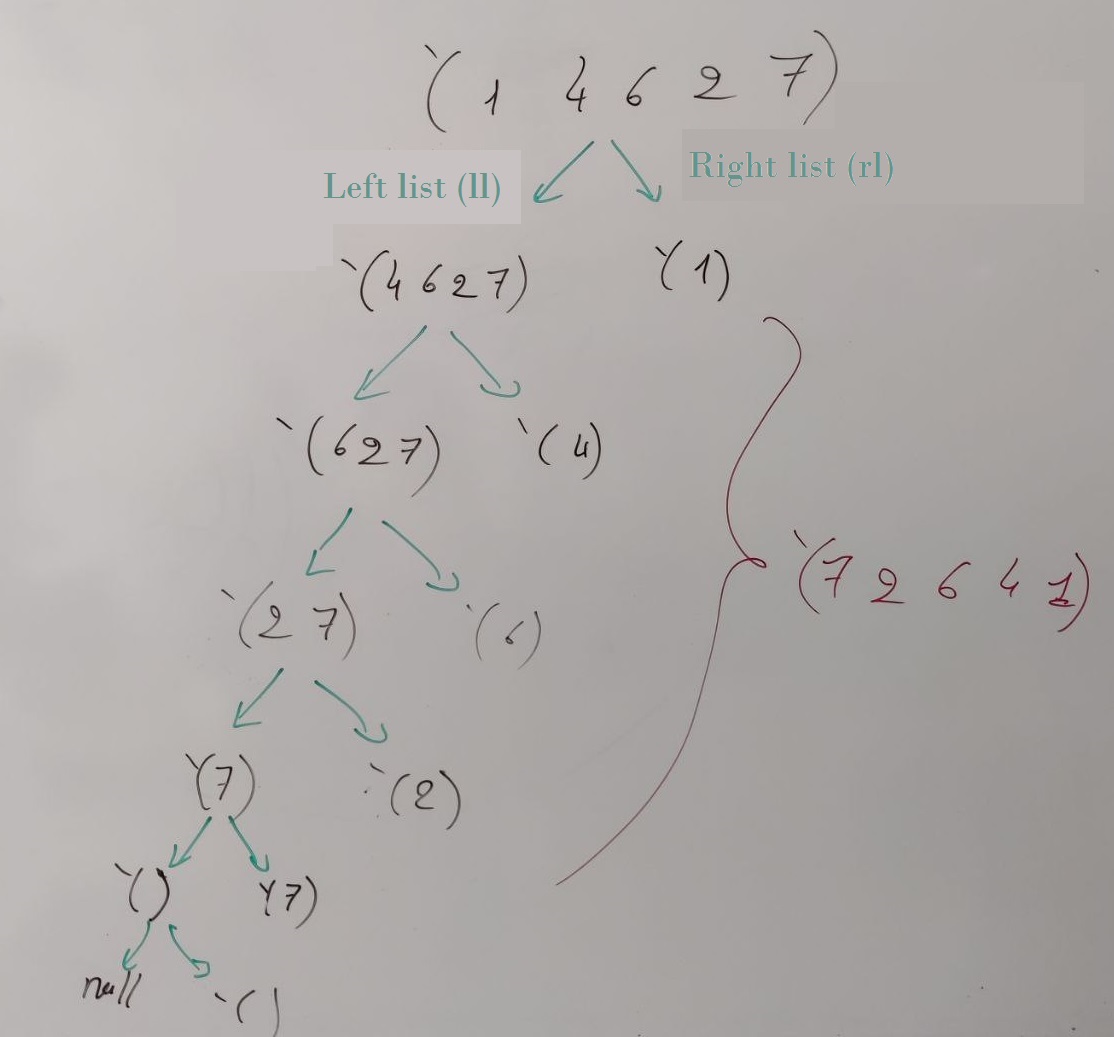 `( 1 4 6 2 7 )
Left list (ll) Right list (rl)
`(4 6 2 7) `(1)
`(6 2 7) `(4)
`(7 2 6 4 1)
`(2 7) `(6)
`(7) `(2)
`() `(7)
null `()